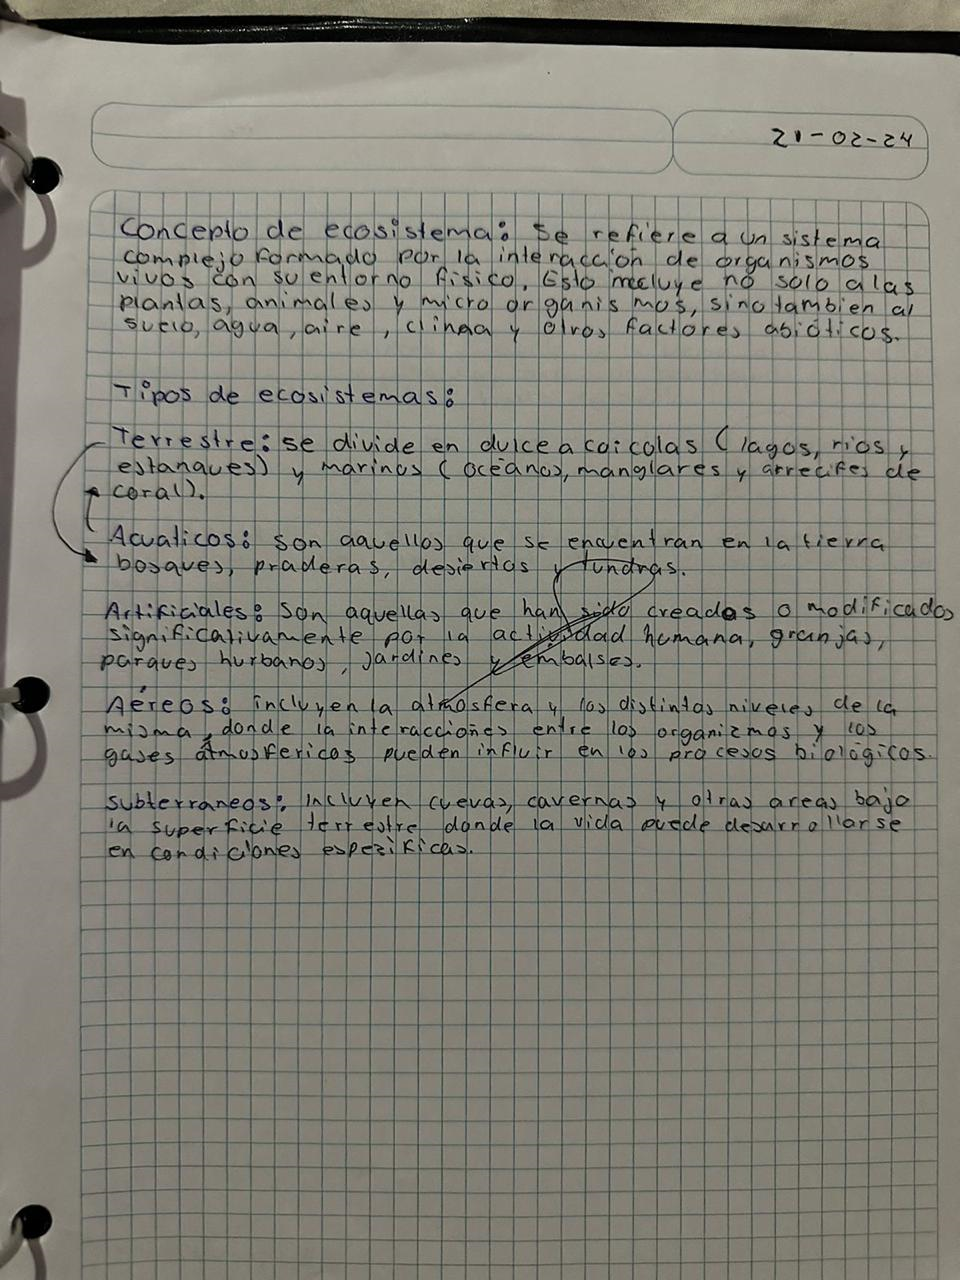 21-02-24
Concepto de ecosistema: Se refiere a un sistema
complejo formado por la interaccion de organismos
vivos con su entorno fisico, Esto incluye no solo a las
plantas, animales y micro organismos, sino tambien al
suelo, agua, aire, clima y otros factores abióticos.
Tipos de ecosistemas:
Terrestre: se divide en dulce a coicolas (lagos, rios y
estanques) y marinos (océanos, manglares y arrecifes de
coral).
Acuaticos: son aquellos que se encuentran en la tierra
bosques, praderas, desiertos y tundras.
Artificiales: Son aquellas que han sido creados o modificados
significativamente por la actividad humana, granjas,
parques hurbanos, jardines y embalses.
Aéreos: incluyen la atmosfera y los distintos niveles de la
misma, donde la interacciones entre los organizmos y los
gases atmosfericos pueden influir en los procesos biologicos.
Subterraneos: Incluyen cuevas, cavernas y otras areas bajo
la superficie terrestre, donde la vida puede desarrollarse
en condiciones espezificas.